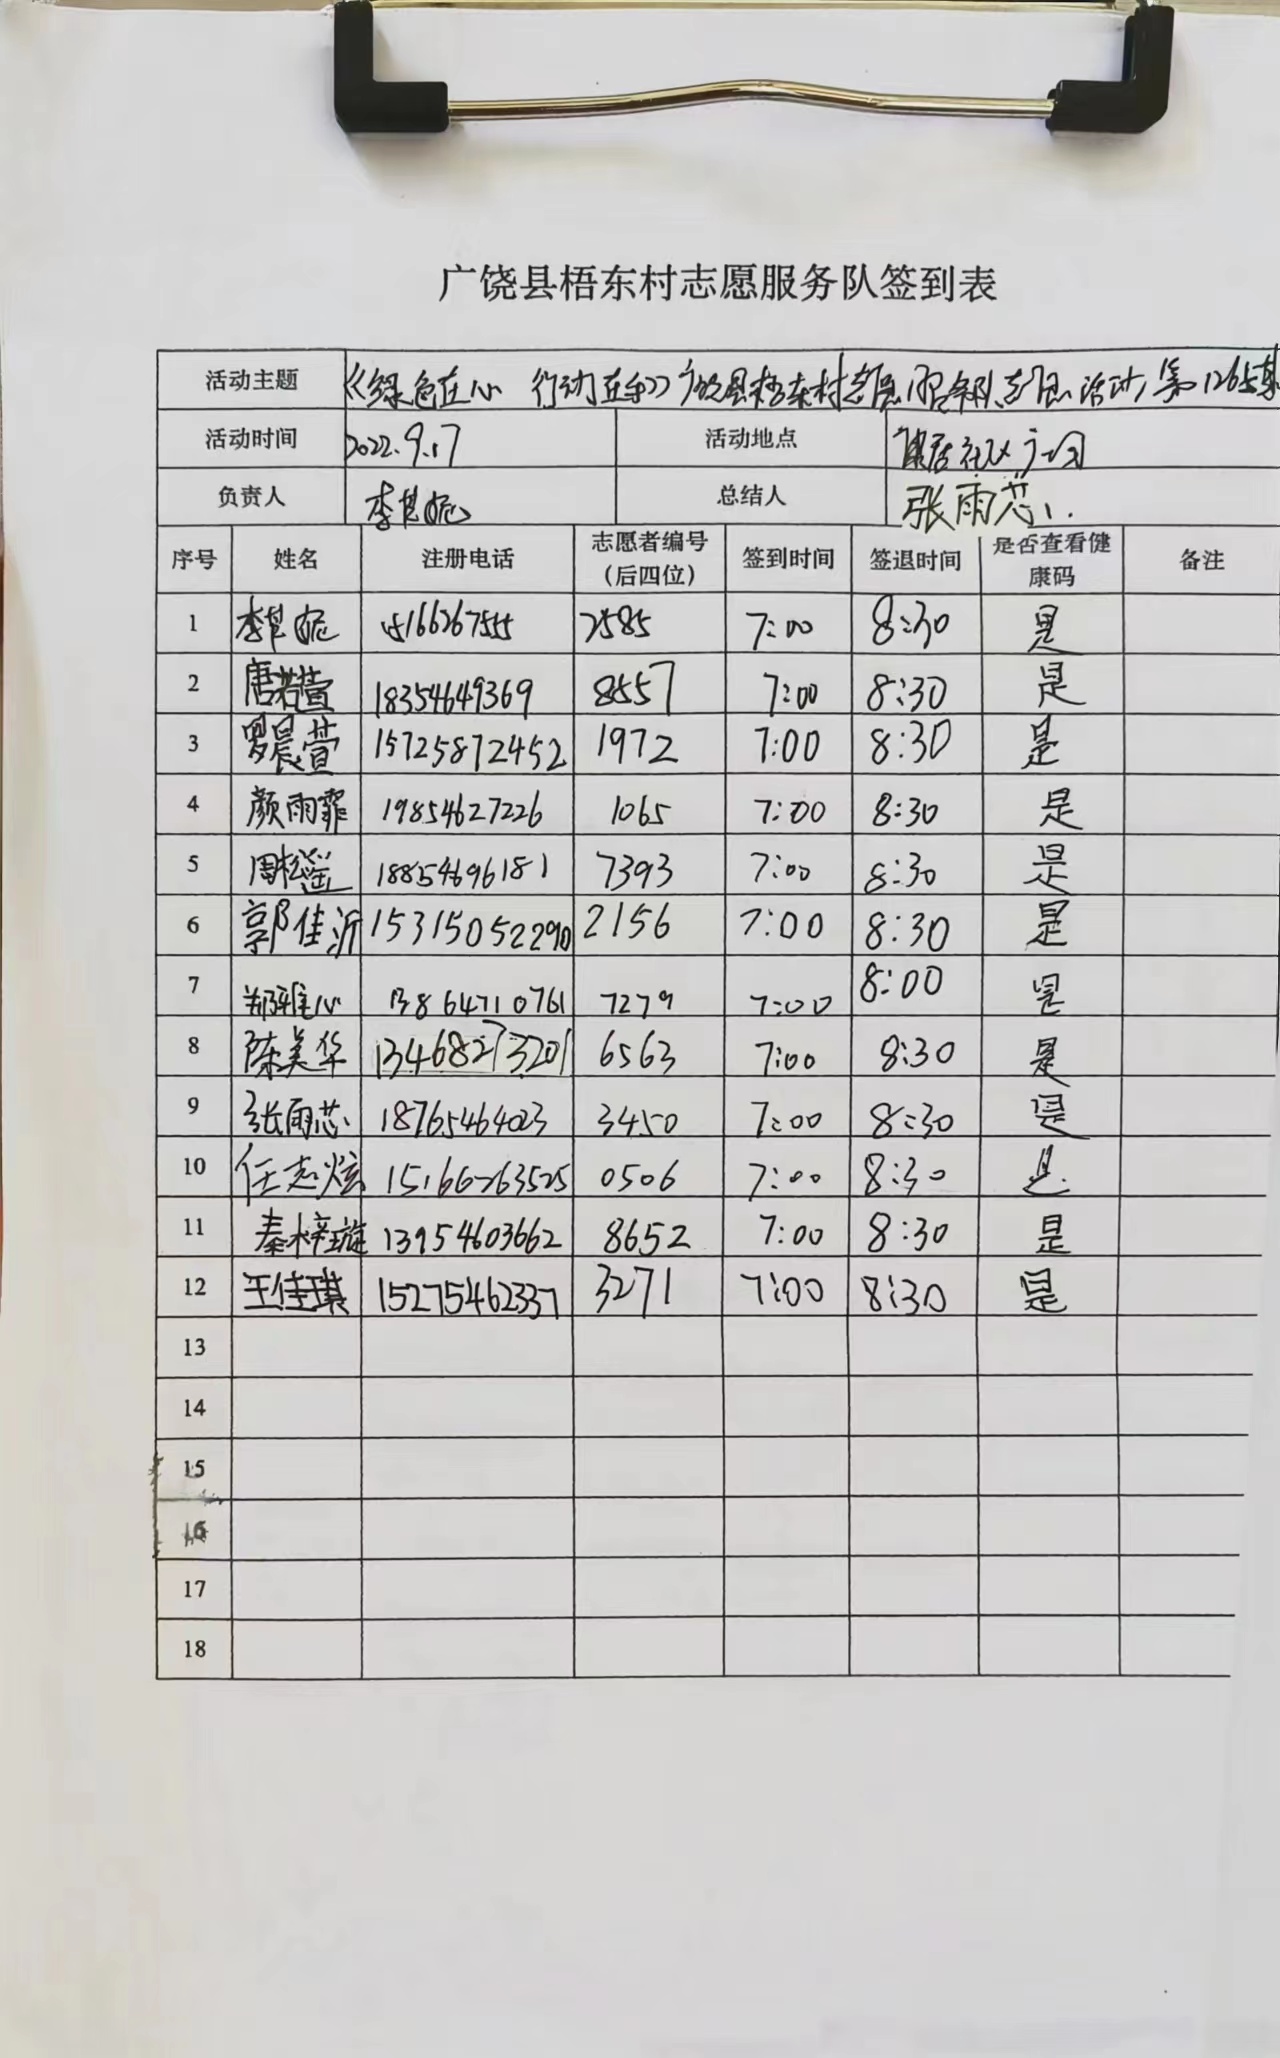 广饶县梧东村志愿服务队签到表
活动主题 《绿色在心 行动在手》广饶县梧东村志愿服务队志愿活动第126
活动时间 2022.9.17 活动地点 社区
负责人 李 总结人 张雨芯
序号 姓名 注册电话 志愿者编号（后四位） 签到时间 签退时间 是否查看健康码 备注
1 李 15166267555 2585 7:00 8:30 是
2 唐若萱 18354649369 8557 7:00 8:30 是
3 罗晨萱 15725872452 1972 7:00 8:30 是
4 颜雨霏 19854627226 1065 7:00 8:30 是
5 周 18854696181 7393 7:00 8:30 是
6 郭佳沂 15315052290 2156 7:00 8:30 是
7 郑雅心 13864710761 7279 7:00 8:00 是
8 陈美华 13468273201 6563 7:00 8:30 是
9 张雨芯 18765464023 3450 7:00 8:30 是
10 任志炫 15166263525 0506 7:00 8:30 是
11 秦梓璇 13954603662 8652 7:00 8:30 是
12 王佳琪 15275462337 3271 7:00 8:30 是
13
14
15
16
17
18